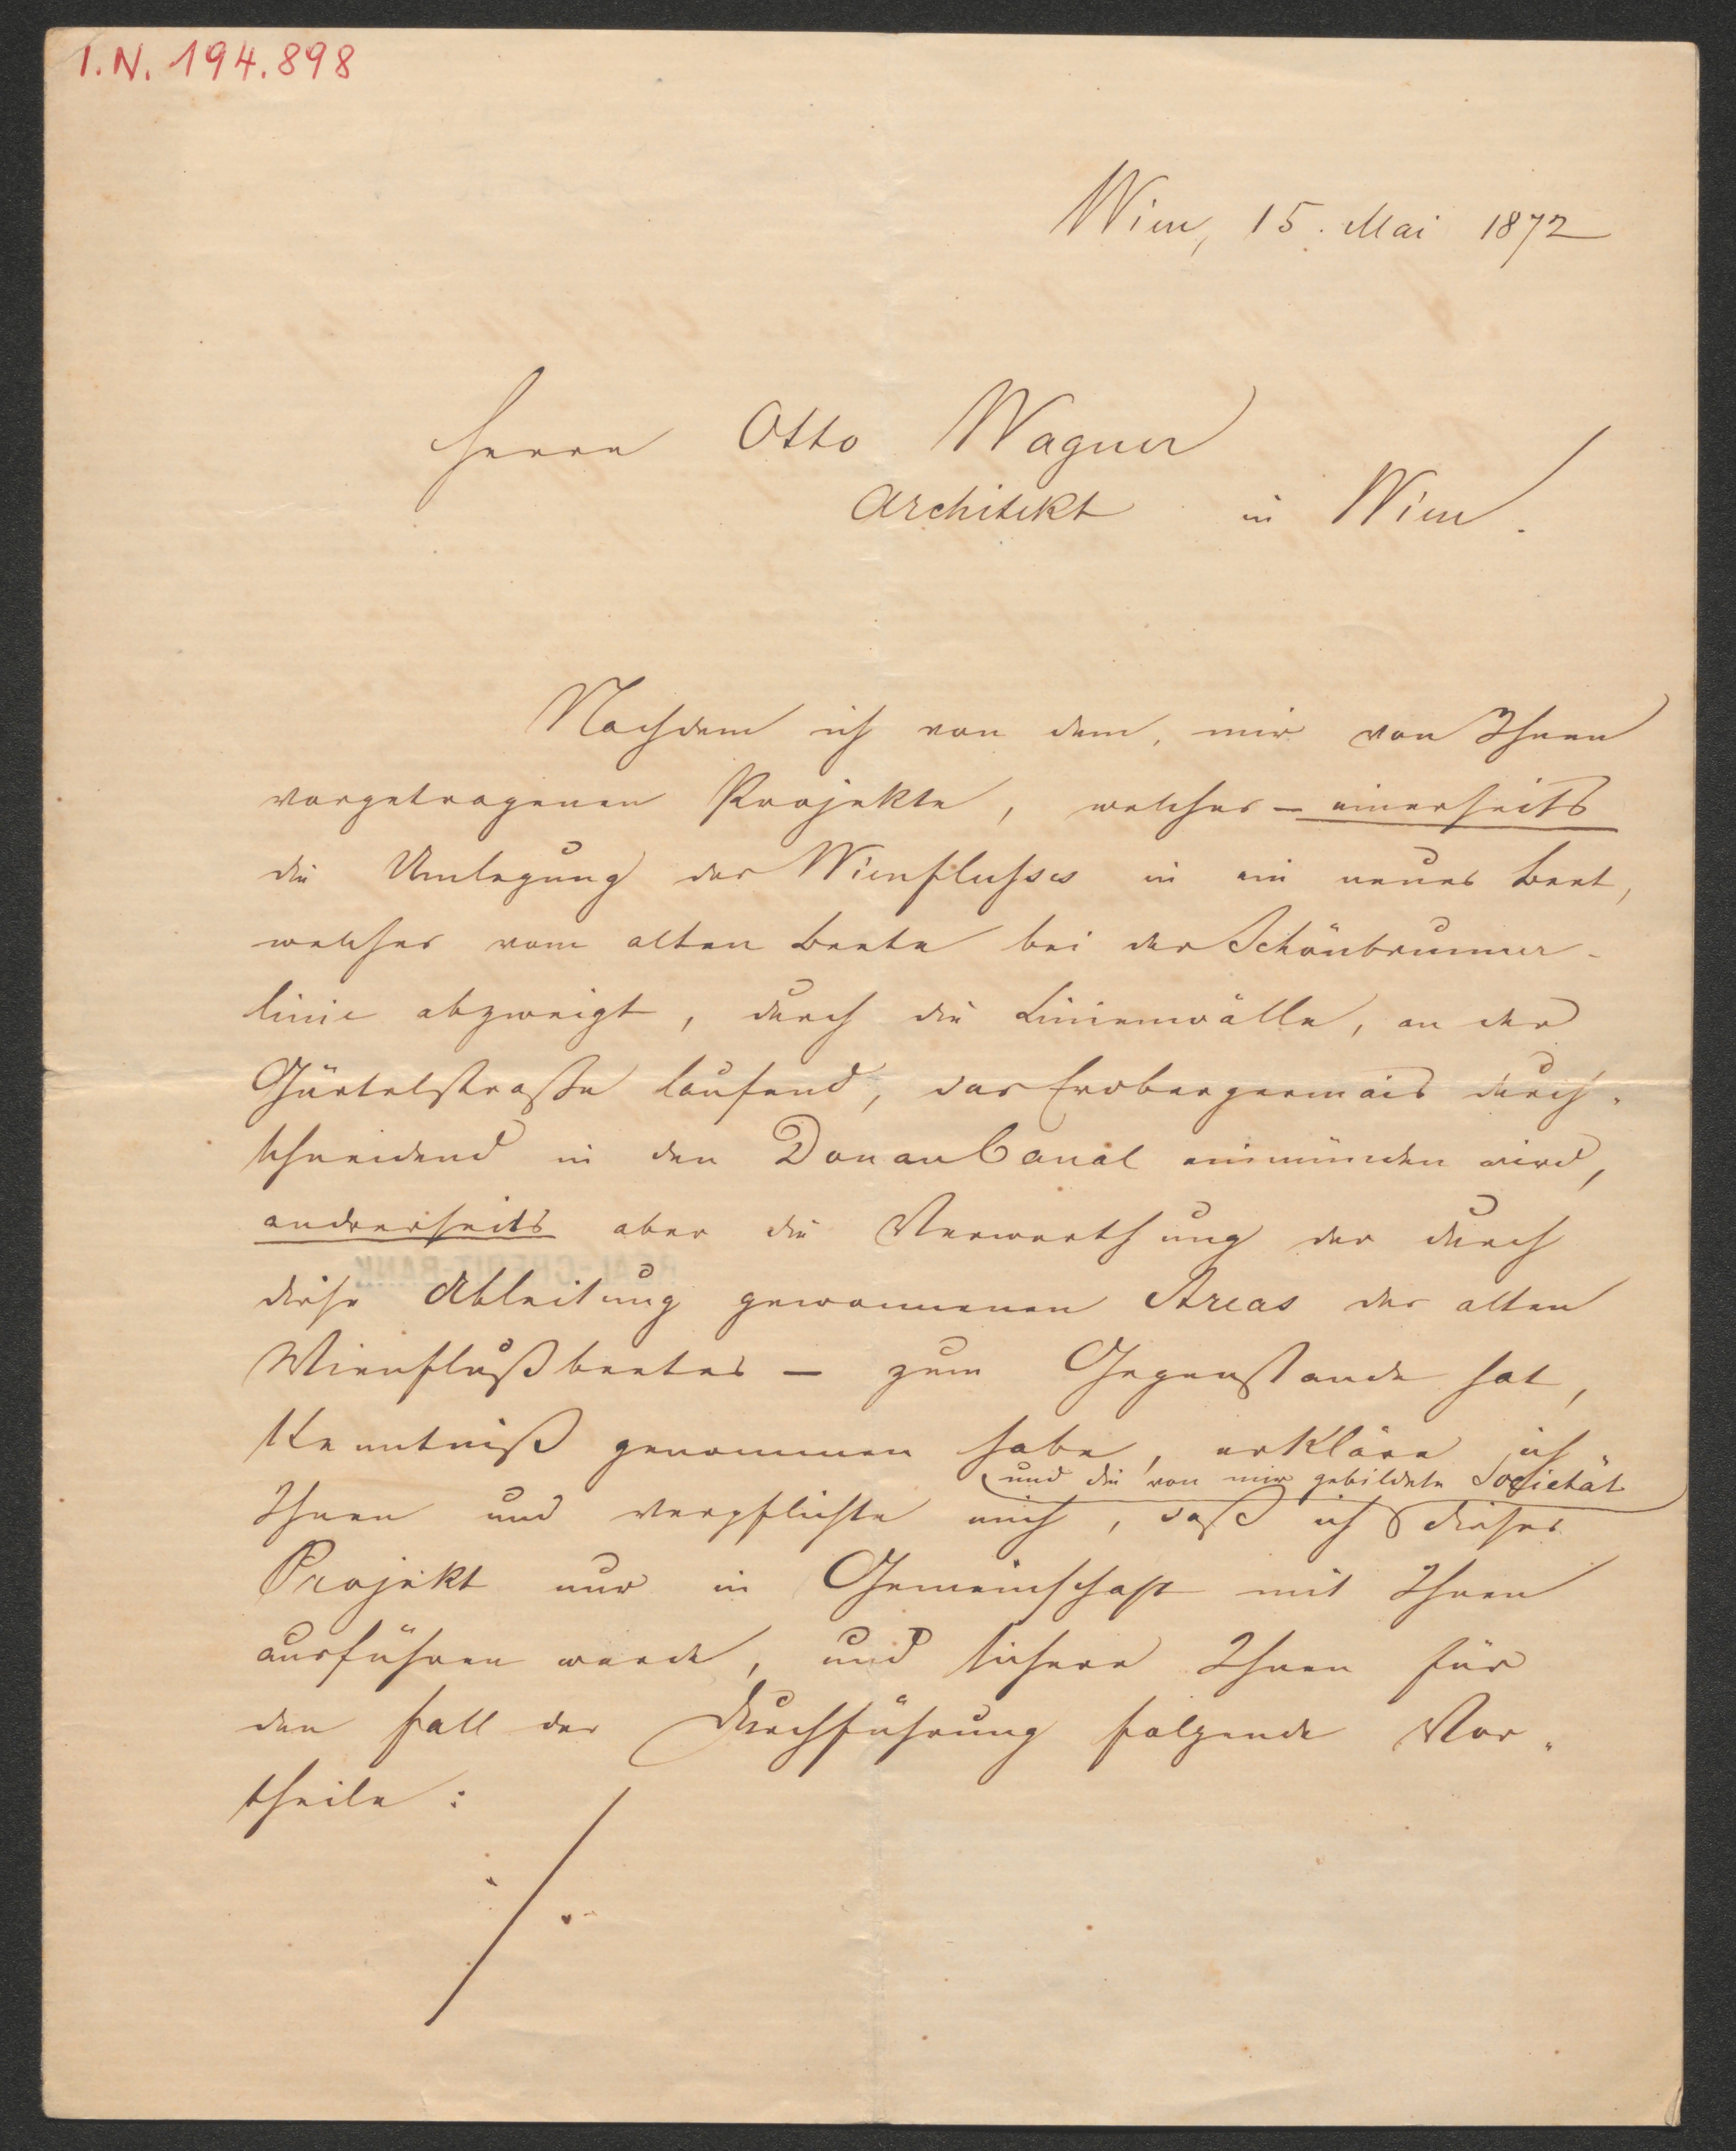 I.N. 194.898
Wien, 15. Mai 1872
Herrn Otto Wagner
Architekt in Wien.
Nachdem ich von dem, mir von Ihnen
vorgetragenen Projekte, welches – einerseits
die Umlegung des Wienflusses in ein neues Beet,
welches vom alten Beete bei der Schönbrunner-
linie abzweigt, durch die Linienwälle, an der
Gürtelstraße laufend, das Erdbergermais durch-
schneidend in den Donau Canal einmünden wird,
andrerseits aber die Verwerthung der durch
diese Ableitung gewonnenen Areas des alten
Wienflußbeetes – zum Gegenstande hat,
Kenntniß genommen habe, erkläre ich
und die von mir gebildete Societät
Ihnen und verpflichte mich, daß ich dieses
Projekt nur in Gemeinschaft mit Ihnen
ausführen werde, und sichere Ihnen für
den Fall der Durchführung folgende Vor-
theile:
REAL-CREDIT-BANK